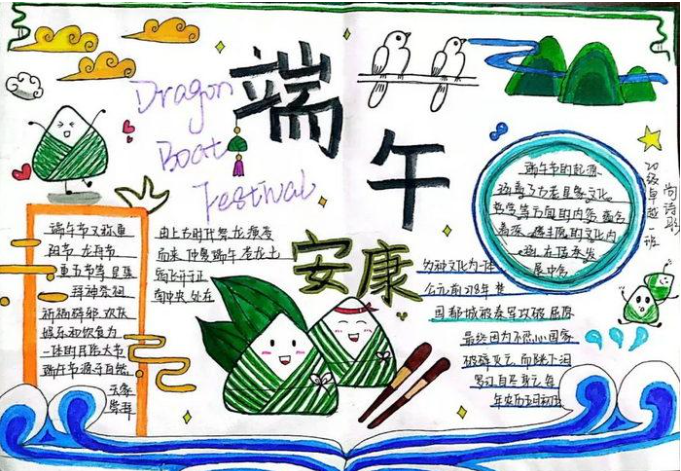 Dragon
Boat
Festival
端午
安康
端午节又称重
节、龙舟节
重五节等、是集
拜神祭祖
祈福辟邪、欢庆
娱乐和饮食为
一体的民俗大节
端午节源于自然
天象
崇拜
由上古时代祭龙演变
而来、仲夏端午苍龙七
宿飞升于正
南中央
端午节的起源
涵盖了古老星象文化
哲学等方面的内容蕴含
着深邃丰厚的文化内
涵在传承发
展中
多种文化为一体
公元前278年
国都城被秦军攻破屈原
最终因为不忍心国家
被
年农历五月初五
20级卓越一班